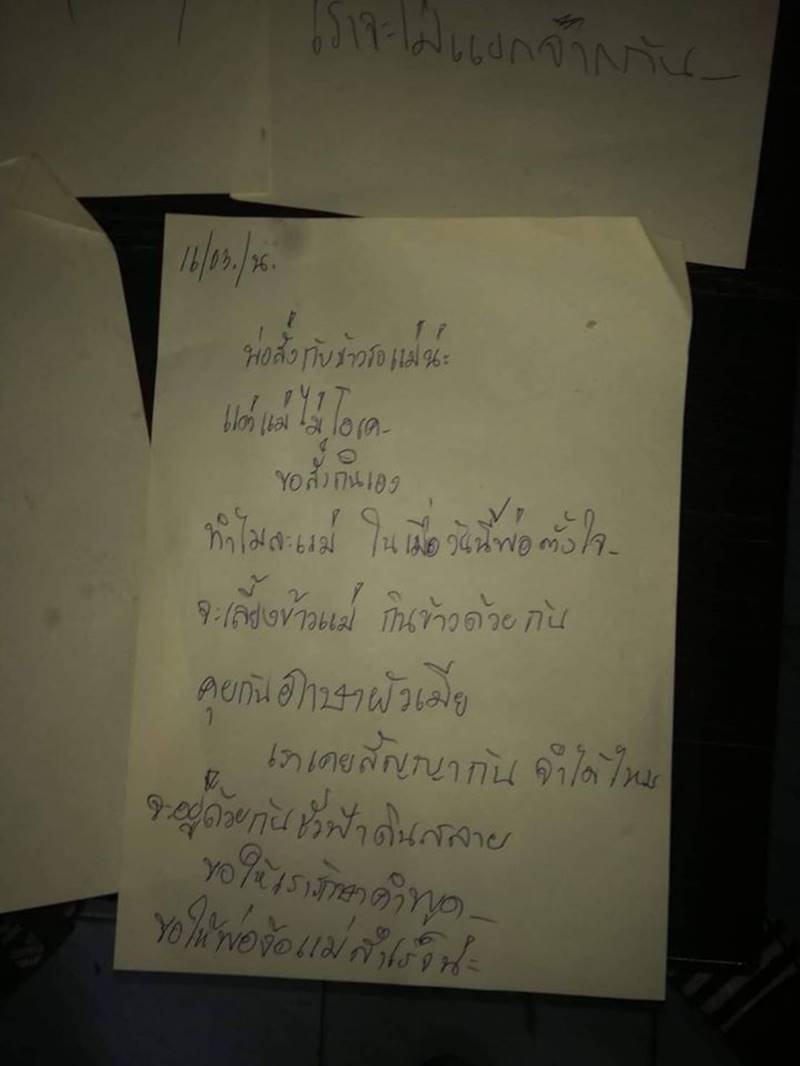 เราจะไม่แยกจากกัน
16/03./น.
พ่อสั่งกับข้าวรอแม่น่ะ
แต่แม่ไม่โอเค
ขอสั่งกินเอง
ทำไมละแม่ ในเมื่อวันนี้พ่อตั้งใจ
จะเลี้ยงข้าวแม่ กินข้าวด้วยกัน
คุยกันภาษาผัวเมีย
เราเคยสัญญากัน จำได้ไหม
จะอยู่ด้วยกันชั่วฟ้าดินสลาย
ขอให้เรารักษาคำพูด
ขอให้พ่อง้อแม่สำเร็จน่ะ